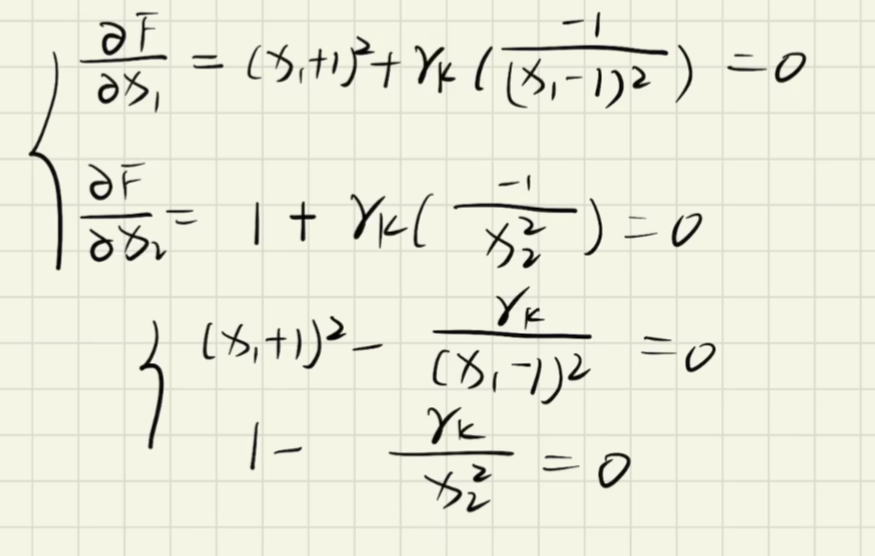 ∂F/∂x₁ = (x₁+1)² + γₖ(-1/(x₁-1)²) = 0
∂F/∂x₂ = 1 + γₖ(-1/x₂²) = 0
(x₁+1)² - γₖ/(x₁-1)² = 0
1 - γₖ/x₂² = 0